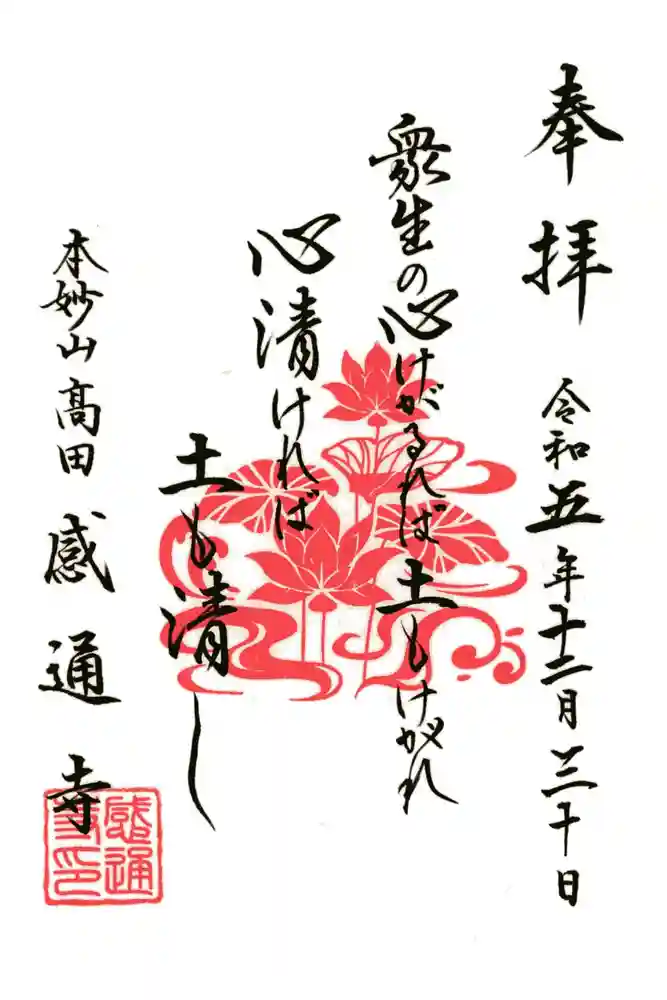 奉拝 令和五年十二月三十日
衆生の心けがるれば土もけがれ
心清ければ
土も清し
本妙山高田感通寺
感通寺印